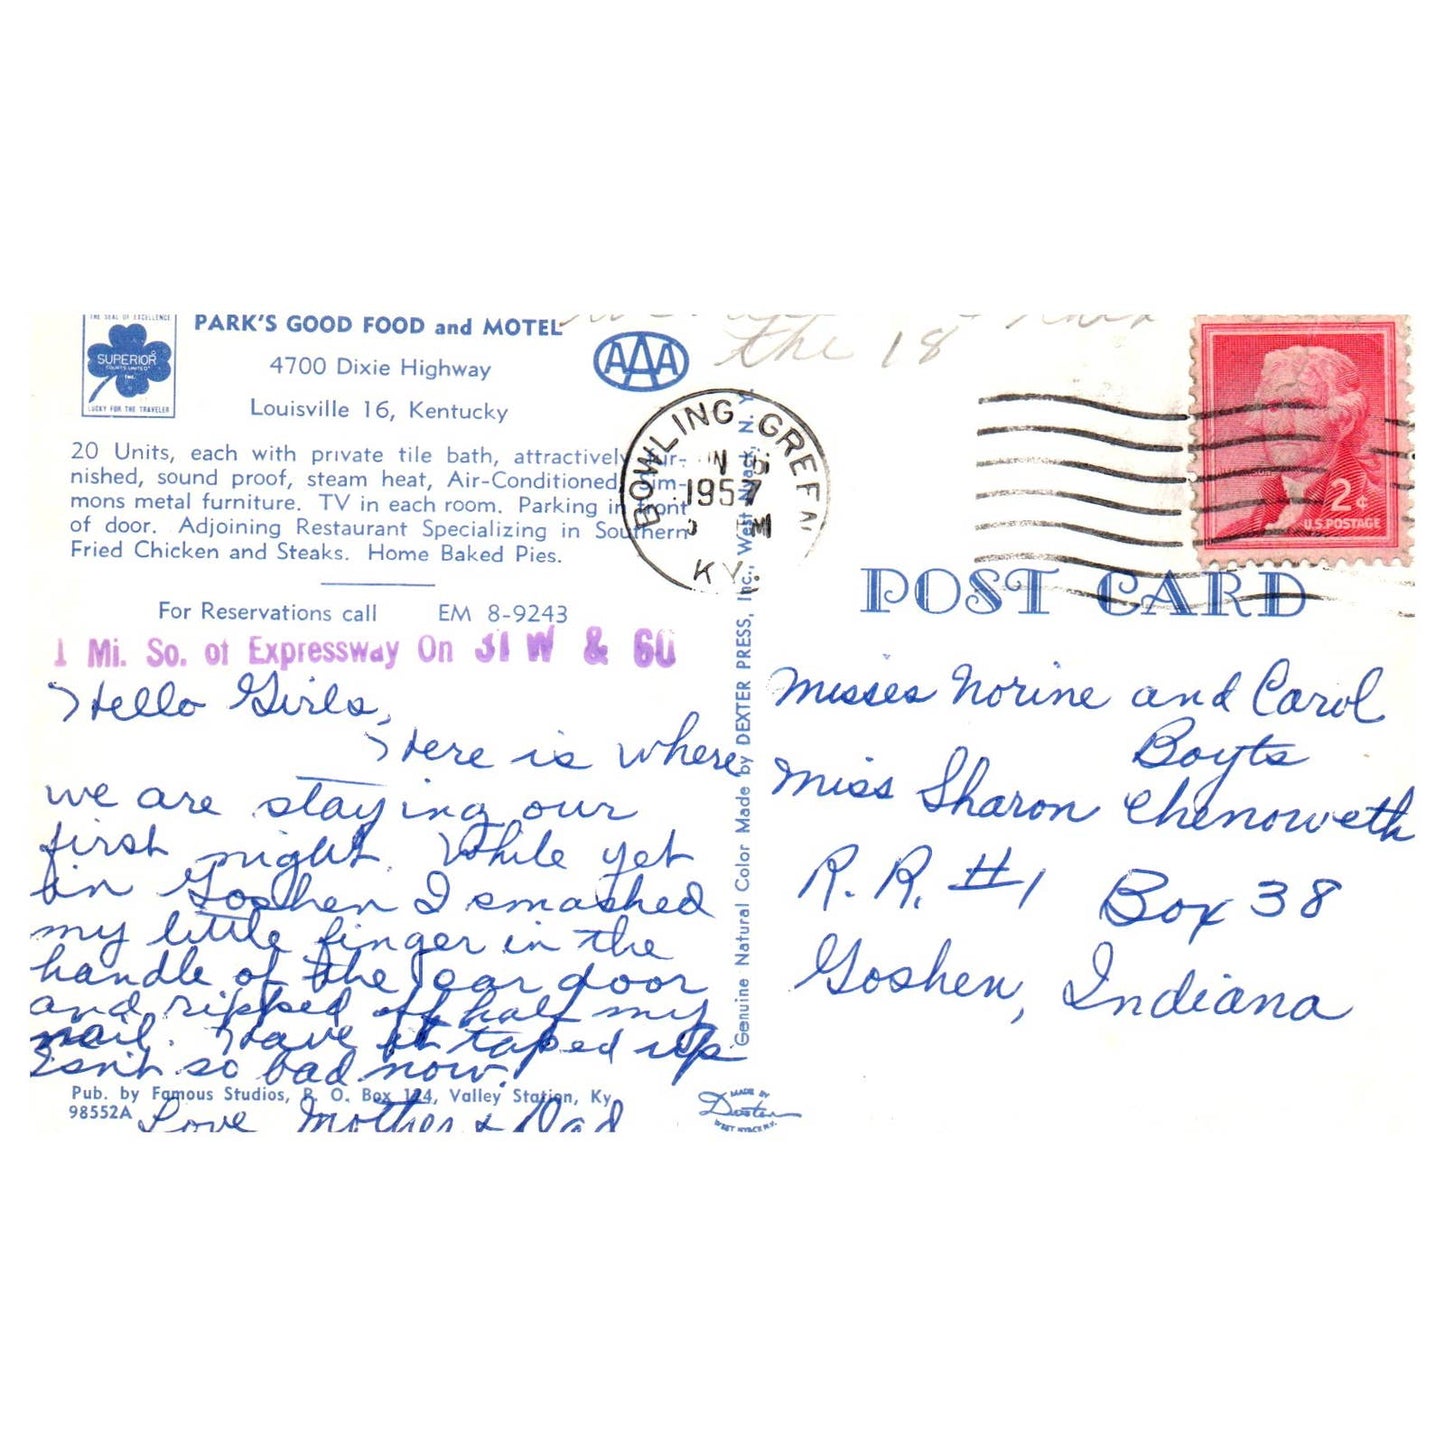 THE SEAL OF EXCELLENCE
SUPERIOR
COURTS UNITED
INC.
LUCKY FOR THE TRAVELER
PARK'S GOOD FOOD and MOTEL
4700 Dixie Highway
Louisville 16, Kentucky
AAA
20 Units, each with private tile bath, attractively fur-
nished, sound proof, steam heat, Air-Conditioned, Sim-
mons metal furniture. TV in each room. Parking in front
of door. Adjoining Restaurant Specializing in Southern
Fried Chicken and Steaks. Home Baked Pies.
For Reservations call EM 8-9243
1 Mi. So. of Expressway On 31 W & 60
Hello Girls,
Here is where
we are staying our
first night. While yet
in Goshen I smashed
my little finger in the
handle of the car door
and ripped off half my
nail. Have it taped up
Isn't so bad now.
Love Mother & Dad
Pub. by Famous Studios, P. O. Box 124, Valley Station, Ky.
98552A
Genuine Natural Color Made by DEXTER PRESS, Inc., West Nyack, N. Y.
MADE BY
Dexter
WEST NYACK N.Y.
the 18
BOWLING GREEN
1957
M
KY.
2¢
U.S. POSTAGE
POST CARD
Misses Norine and Carol
Boyts
Miss Sharon Chenoweth
R. R. #1 Box 38
Goshen, Indiana